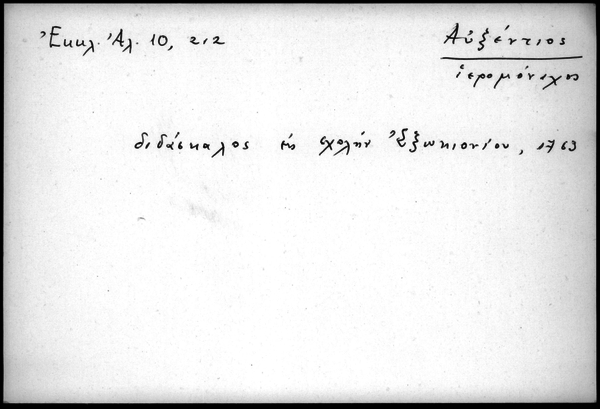 Ἐκκλ. Ἀλ. 10, 212
Αὐξέντιος
ἱερομόναχος
διδάσκαλος εἰς σχολὴν Ἐξωκιονίου, 1763